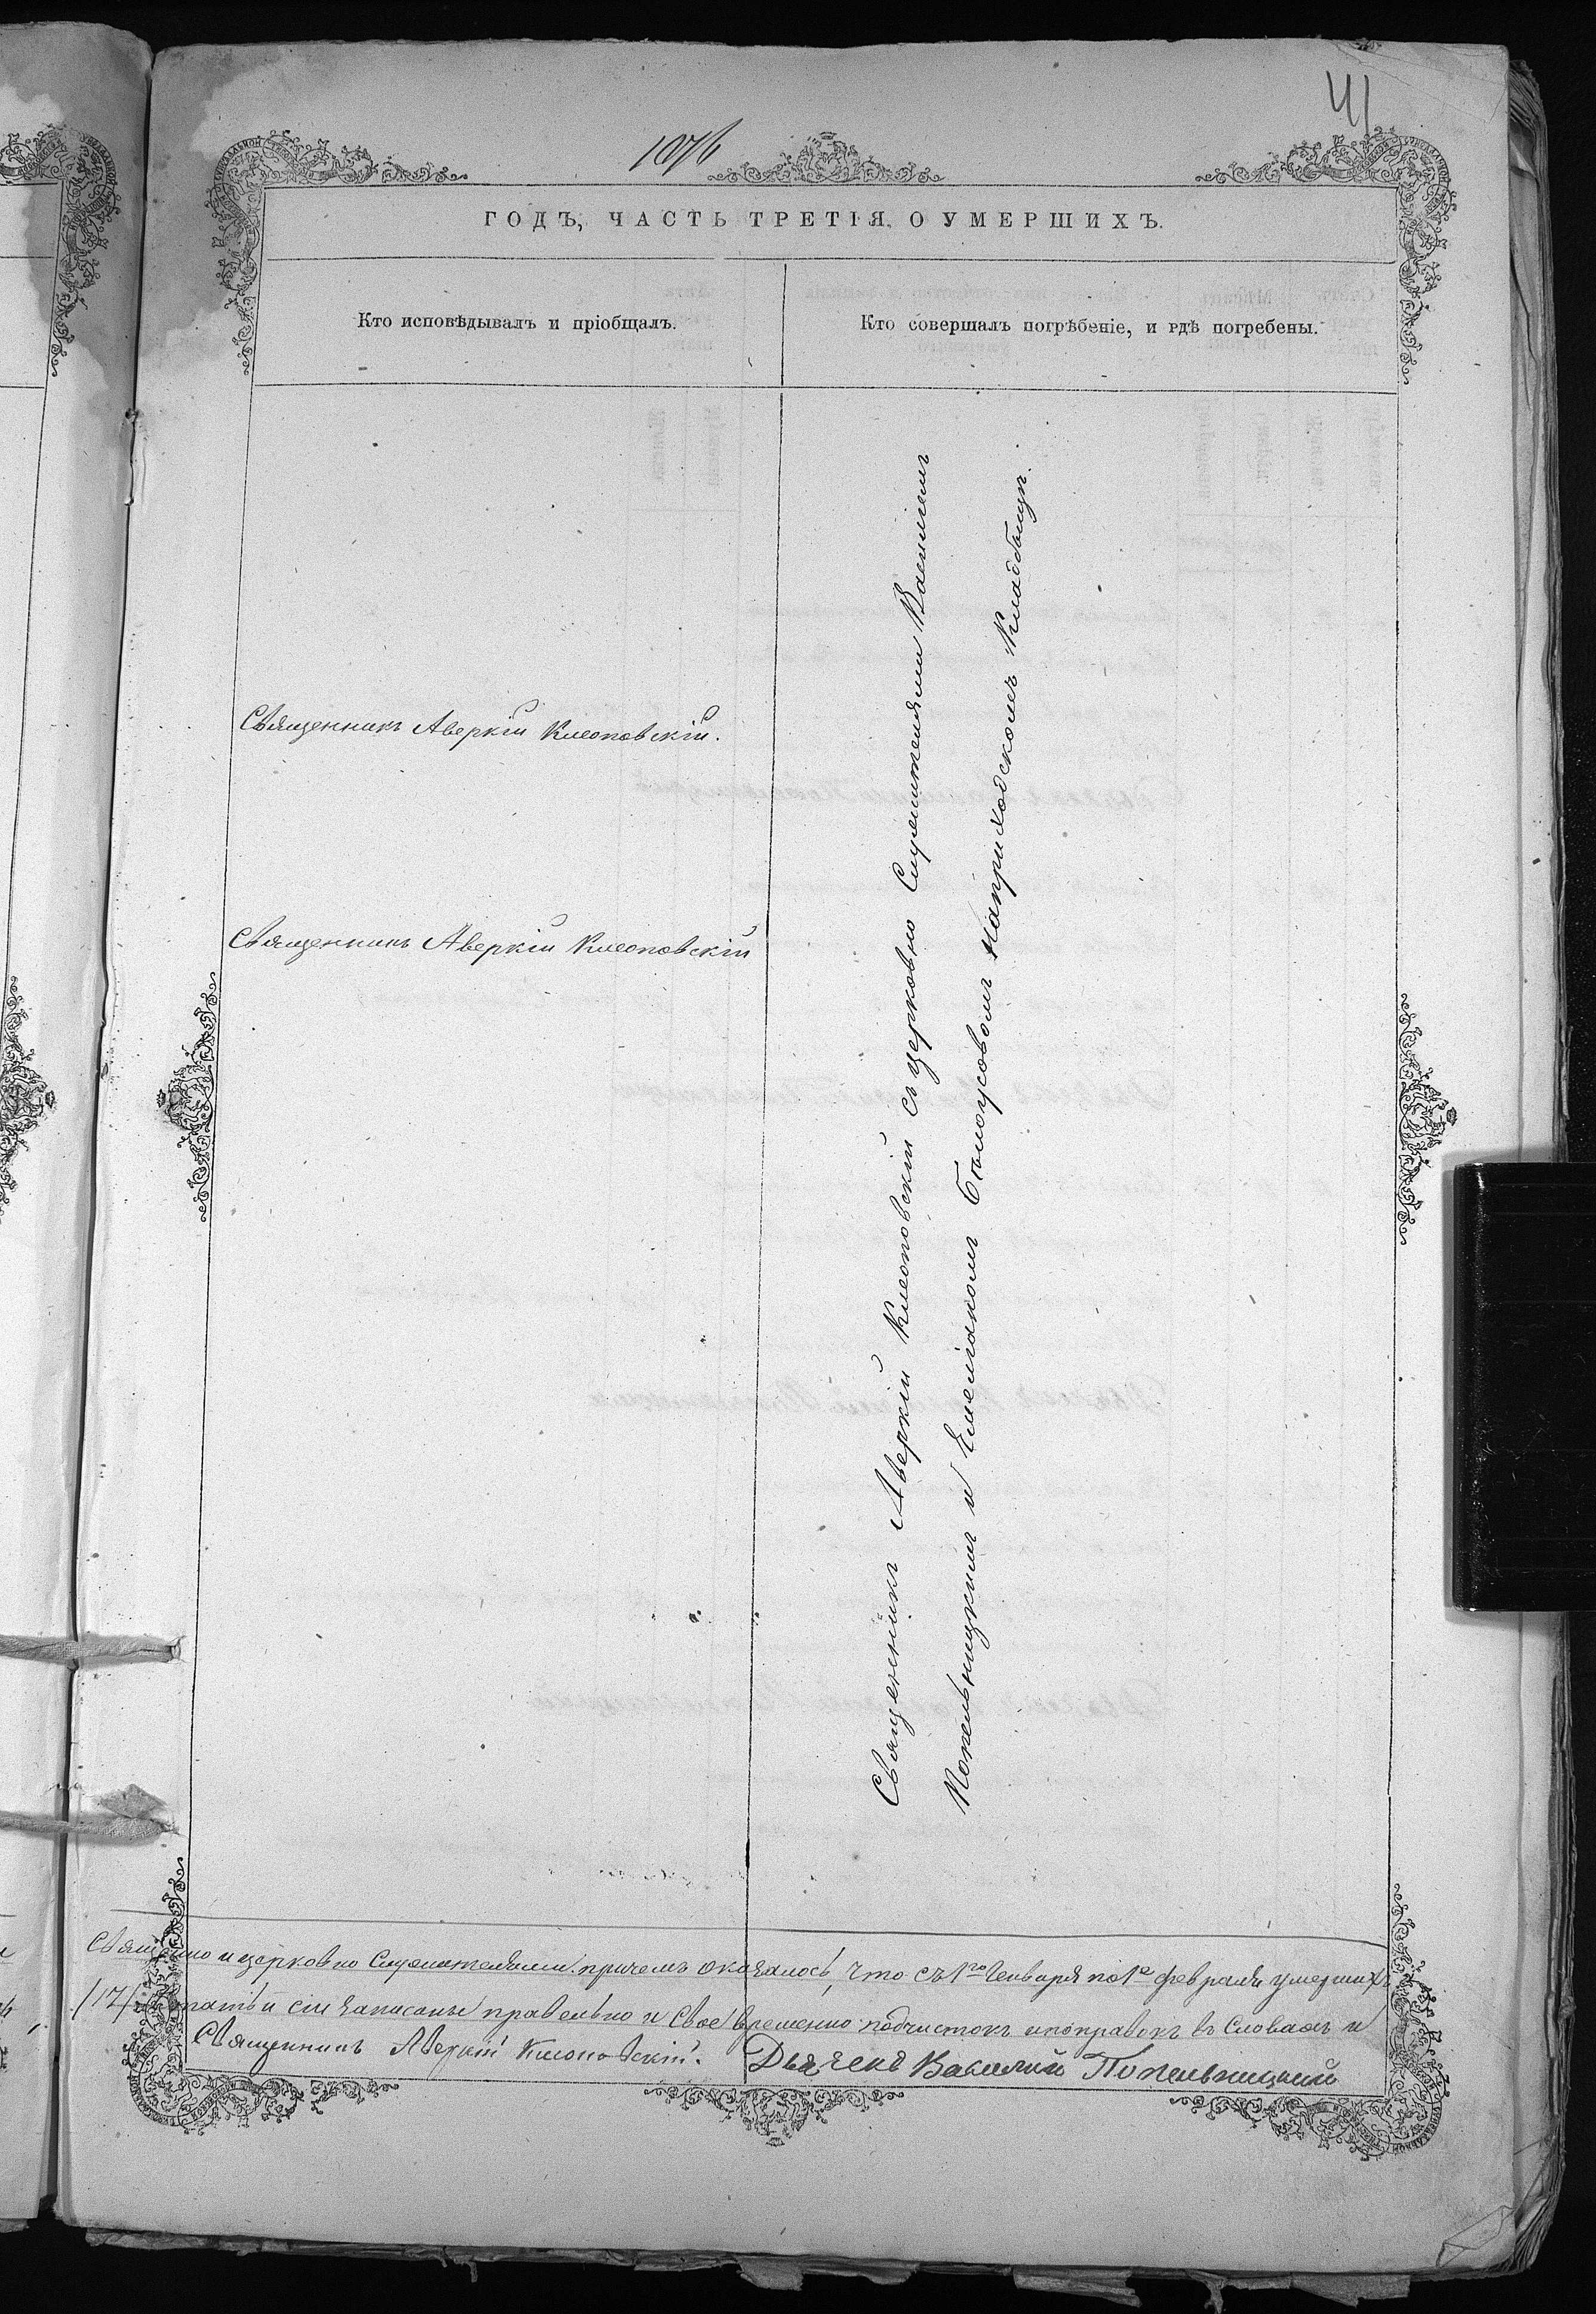 41
1876
ГОДЪ, ЧАСТЬ ТРЕТІЯ, О УМЕРШИХЪ.
Кто исповѣдывалъ и пріобщалъ.
Кто совершалъ погрѣбеніе, и гдѣ погребены.
Священникъ Аверкій Клеоповскій.
Священникъ Аверкій Клеоповскій
Священникъ Аверкій Клеоповскій съ церковно Служителями Василіемъ
Попельницкимъ и Емеліаномъ Бѣлоусовомъ на приходскомъ Кладбищѣ.
Священно и церковно Служителями причемъ оказалось, что съ 1го Генваря по 1е февраля умершихъ
пать и сіи записаны правельно и своевременно подчистокъ и поправокъ въ Словахъ и
Священникъ Аверкій Клеоповскій. Дьячекъ Василий Попельницкий